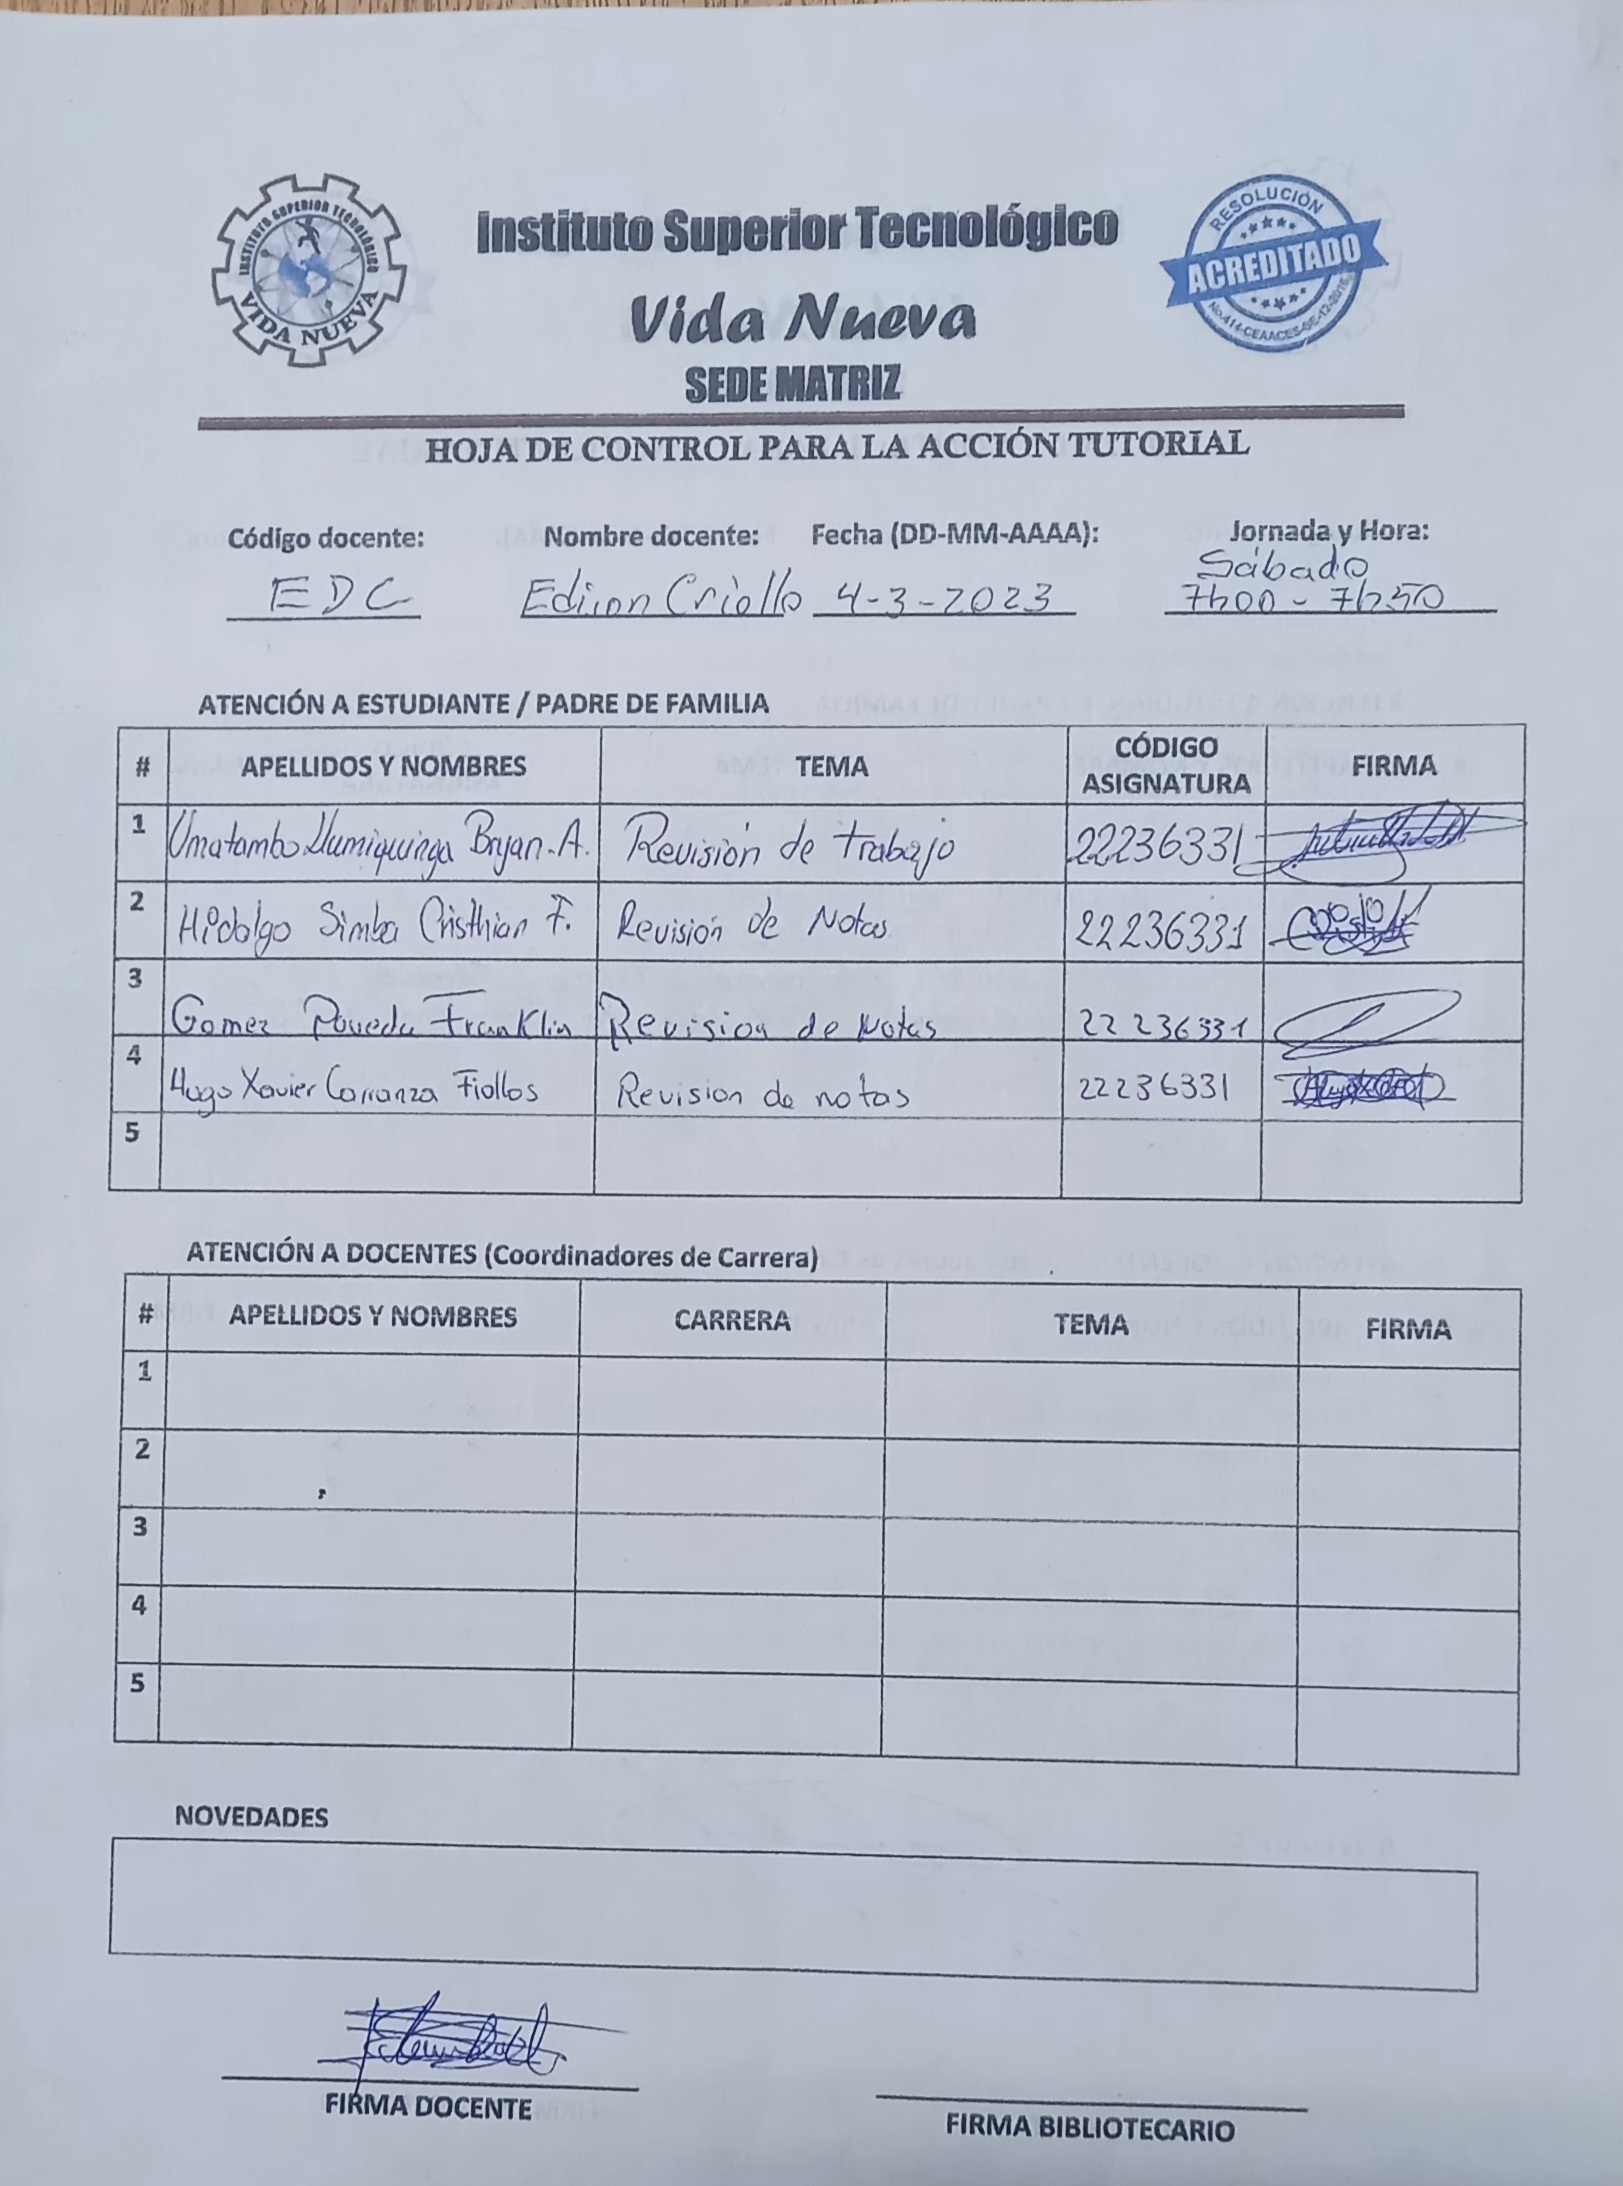 INSTITUTO SUPERIOR TECNOLÓGICO
VIDA NUEVA
Instituto Superior Tecnológico
Vida Nueva
SEDE MATRIZ
RESOLUCIÓN
ACREDITADO
HOJA DE CONTROL PARA LA ACCIÓN TUTORIAL
Código docente: Nombre docente: Fecha (DD-MM-AAAA): Jornada y Hora:
Sábado
EDC Edison Criollo 4-3-2023 7h00 - 7h50
ATENCIÓN A ESTUDIANTE / PADRE DE FAMILIA
# APELLIDOS Y NOMBRES TEMA CÓDIGO ASIGNATURA FIRMA
1 Umatambo Llumiquinga Bryan. A. Revisión de trabajo 22236331
2 Hidalgo Simba Cristhian F. Revisión de Notas 22236331
3 Gomez Poveda Franklin Revision de Notas 22236331
4 Hugo Xavier Carranza Fiallos Revision de notas 22236331
5
ATENCIÓN A DOCENTES (Coordinadores de Carrera)
# APELLIDOS Y NOMBRES CARRERA TEMA FIRMA
1
2
3
4
5
NOVEDADES
FIRMA DOCENTE
FIRMA BIBLIOTECARIO